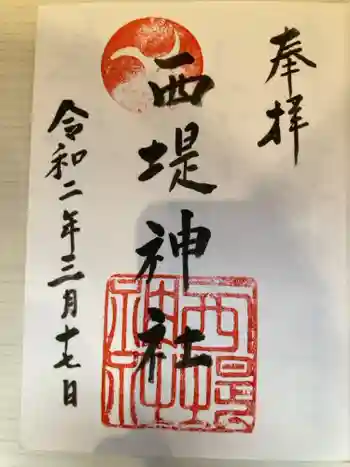 奉拝
西堤神社
令和二年三月十七日
西堤
神社